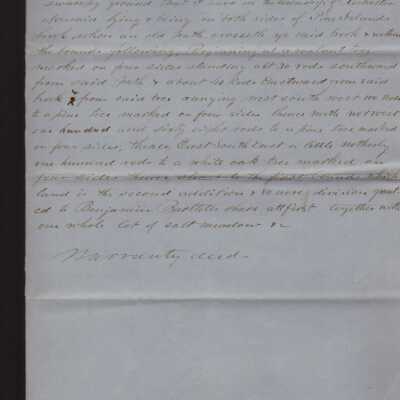 swampy ground that it lies in the township of Rochester
aforesaid lying & being on both sides of
brook where an old path crosseth said brook & within
the bounds following. Beginning at a walnut tree
marked on four sides standing abt rods southward
from said path & about 40 Rods Eastward from said
brook & from said tree ranging west south west rods
to a pine tree marked on four sides thence north norwest
one hundred and sixty eight rods to a pine tree marked
on four sides, thence East South East a little northerly
one hundred rods to a white oak tree marked on
four sides thence to the first bounds which
land is the second addition & division grant
ed to Benjamin Bartletts share at first together with
one whole lot of salt meadow &c
Warranty deed.